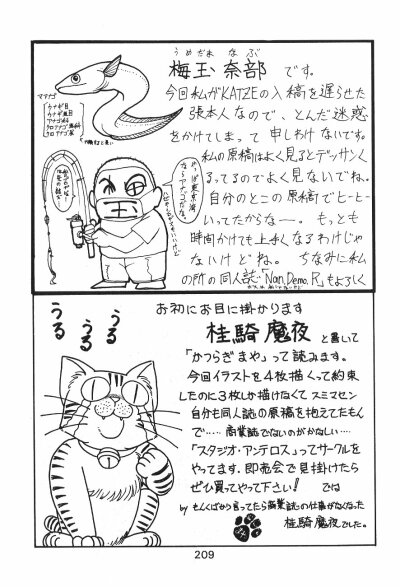 うめだま なぶ
梅玉 奈部 です。
今回私がKATZEの入稿を遅らせた
張本人なので、とんだ迷惑
をかけてしまって 申しわけないです。
私の原稿はよく見るとデッサンく
るってるのでよく見ないでね。
自分のとこの原稿でヒーヒー
いってたからなー。もっとも
時間かけても上手くなるわけじゃ
ないけどね。ちなみに私
の所の同人誌「Non.Demo.R」もよろしく
マアナゴ
ウナギ目
ウナギ亜目
アナゴ科
クロアナゴ亜科
クロアナゴ属
うる
うる
うる
お初にお目に掛かります
桂騎魔夜 と書いて
「かつらぎまや」って読みます。
今回イラストを4枚描くって約束
したのに3枚しか描けなくて スミマセン
自分も同人誌の原稿を抱えてたもん
で‥‥‥商業誌でないのがかなしい‥‥
「スタジオ・アンテロス」ってサークルを
やってます。即売会で見掛けたら
ぜひ買ってやって下さい! では
by もんくばかり言ってたら商業誌の仕事がなくなった
桂騎魔夜でした。
209